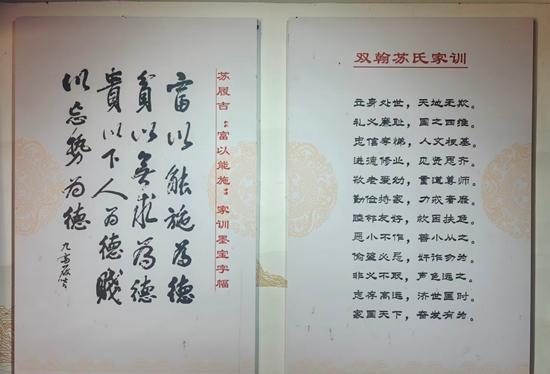 苏履吉“富以能施”家训墨宝字幅
富以能施为德
貧以无求为德
貴以下人为德賤
以忘勢为德
双翰苏氏家训
立身处世，天地无欺。
礼义廉耻，国之四维。
忠信孝悌，人文根基。
进德修业，见贤思齐。
敬老爱幼，重道尊师。
勤俭持家，力戒奢靡。
睦邻友好，救困扶危。
恶小不作，善小从之。
偷盗必忌，奸诈勿为。
非义不取，声色远之。
志存高远，济世匡时。
家国天下，奋发有为。